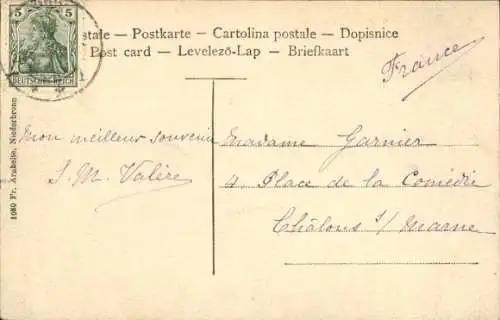 5 5
DEUTSCHES REICH
stale — Postkarte — Cartolina postale — Dopisnice
Post card — Levelező-Lap — Briefkaart
France
1080 Fr. Arabelle, Niederbronn
Mon meilleur souvenir
J. M. Valère
Madame Garnier
4, Place de la Comédie
Châlons s/ Marne